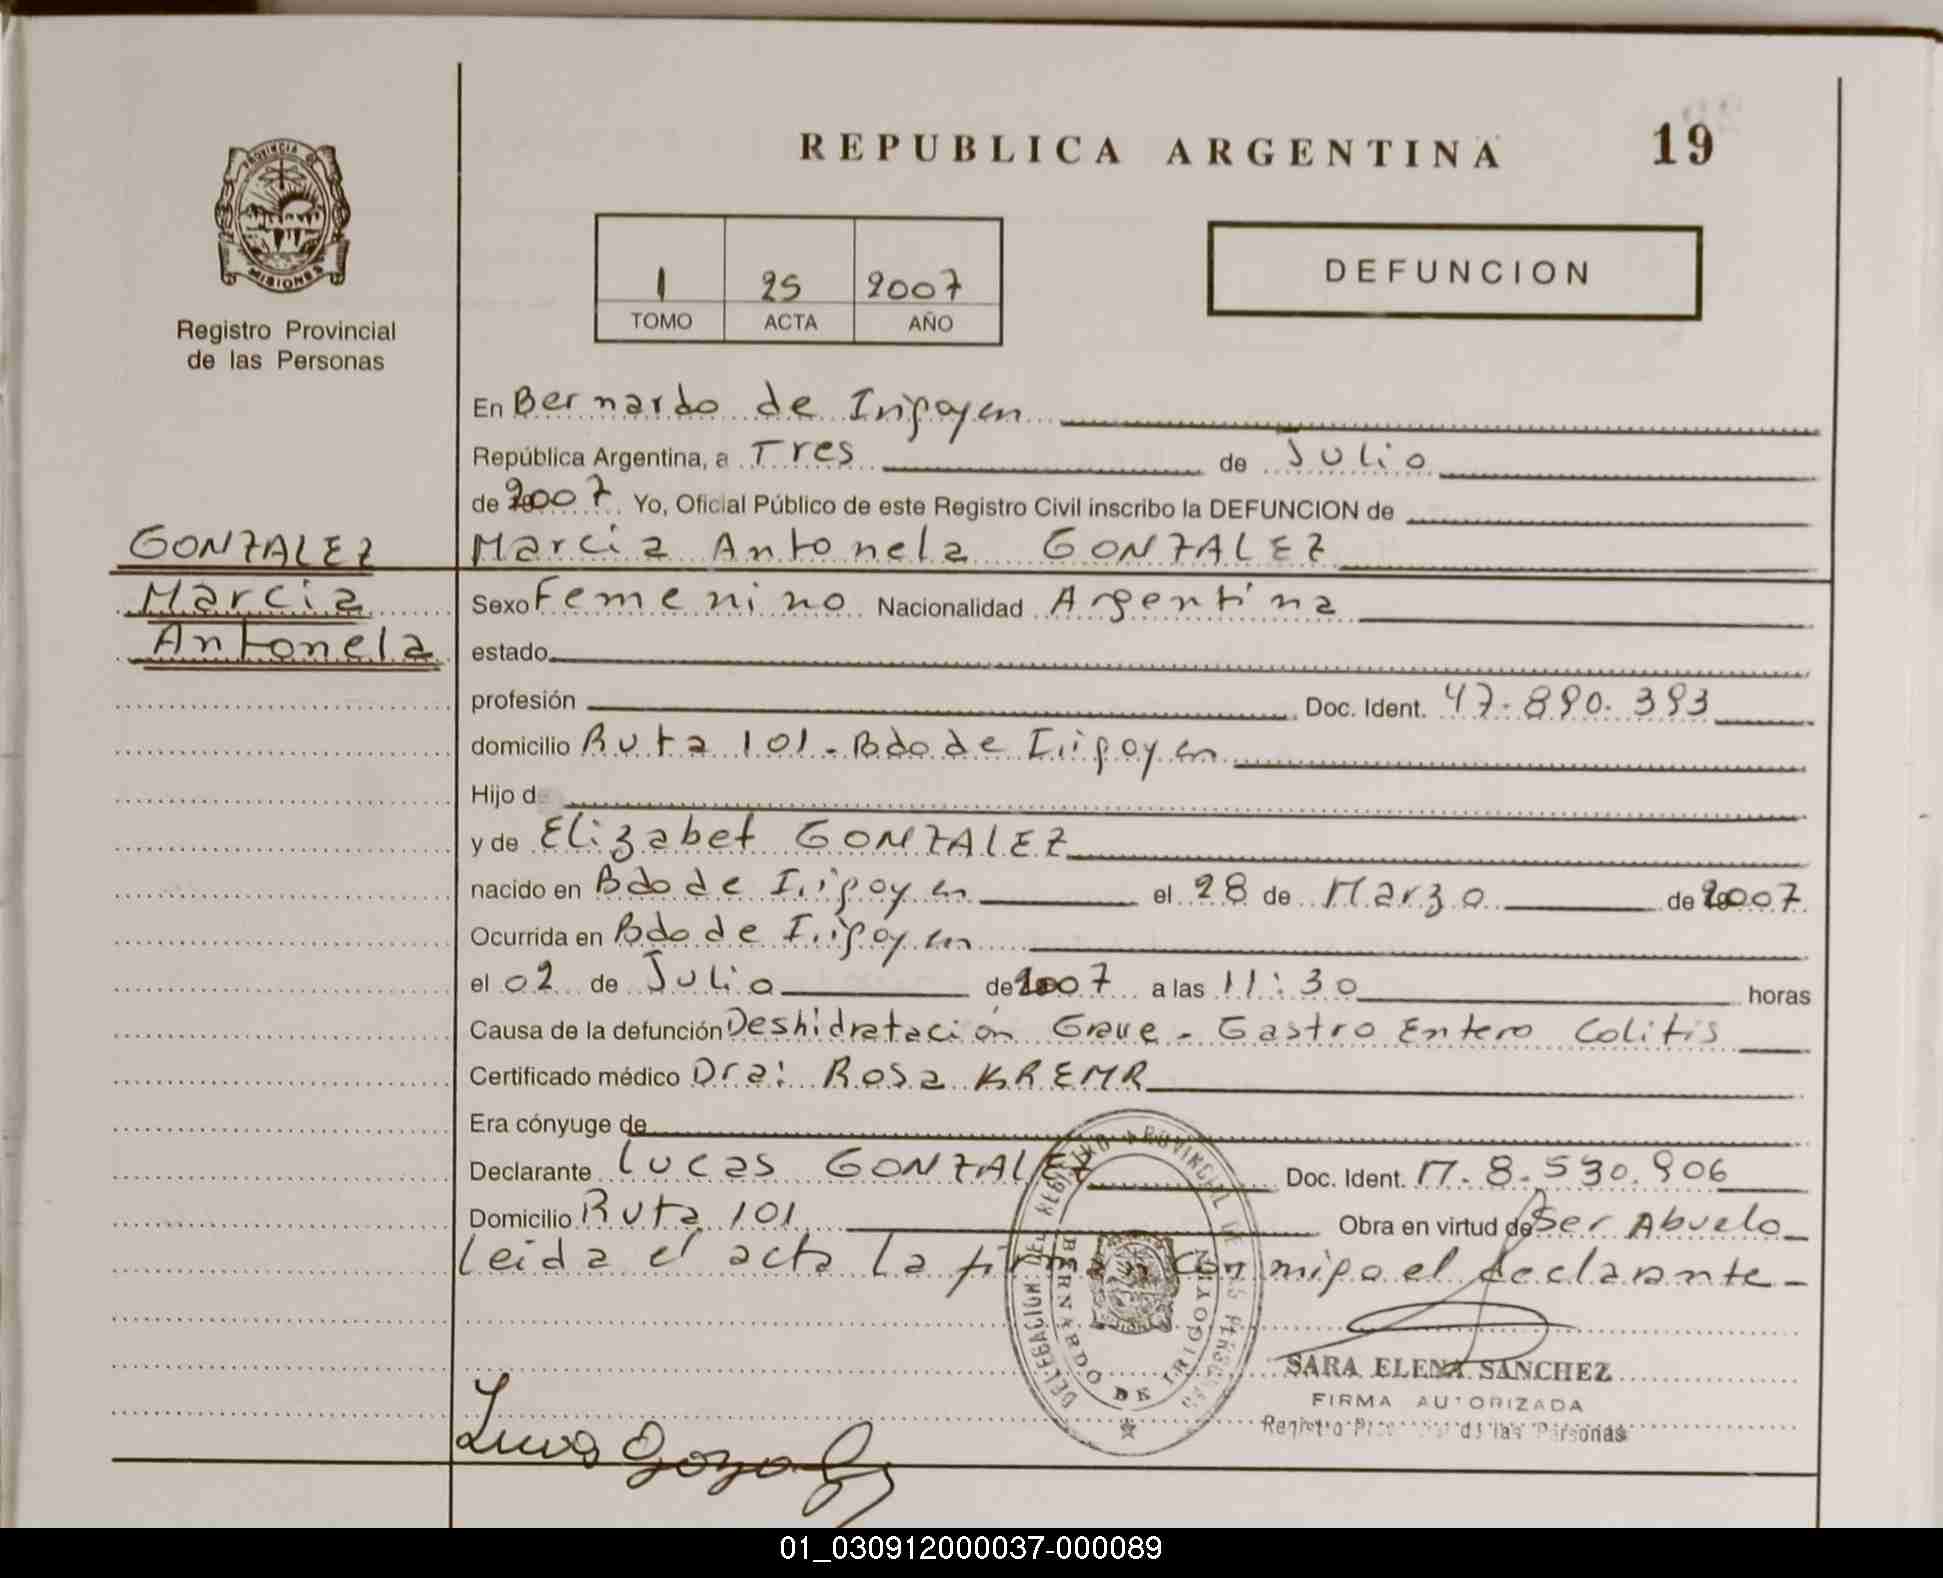 REPUBLICA ARGENTINA
19
PROVINCIA DE
MISIONES
Registro Provincial
de las Personas
1 25 2007
TOMO ACTA AÑO
DEFUNCION
En Bernardo de Irigoyen
República Argentina, a Tres de Julio
de 2007 Yo, Oficial Público de este Registro Civil inscribo la DEFUNCION de
GONZALEZ
Marcia
Antonela
Marcia Antonela GONZALEZ
Sexo Femenino Nacionalidad Argentina
estado
profesión Doc. Ident. 47.890.393
domicilio Ruta 101 - Bdo de Irigoyen
Hijo de
y de Elizabet GONZALEZ
nacido en Bdo de Irigoyen el 28 de Marzo de 2007
Ocurrida en Bdo de Irigoyen
el 02 de Julio de 2007 a las 11:30 horas
Causa de la defunción Deshidratación Grave - Gastro Entero Colitis
Certificado médico Dra: Rosa KREMR
Era cónyuge de
Declarante Lucas GONZALEZ Doc. Ident. M. 8.530.906
Domicilio Ruta 101 Obra en virtud de Ser Abuelo
Leida el acta la firma conmigo el declarante
DELEGACION DEL REGISTRO PROVINCIAL DE LAS PERSONAS
BERNARDO DE IRIGOYEN
SARA ELENA SANCHEZ
FIRMA AUTORIZADA
Registro Provincial de las Personas
01_030912000037-000089